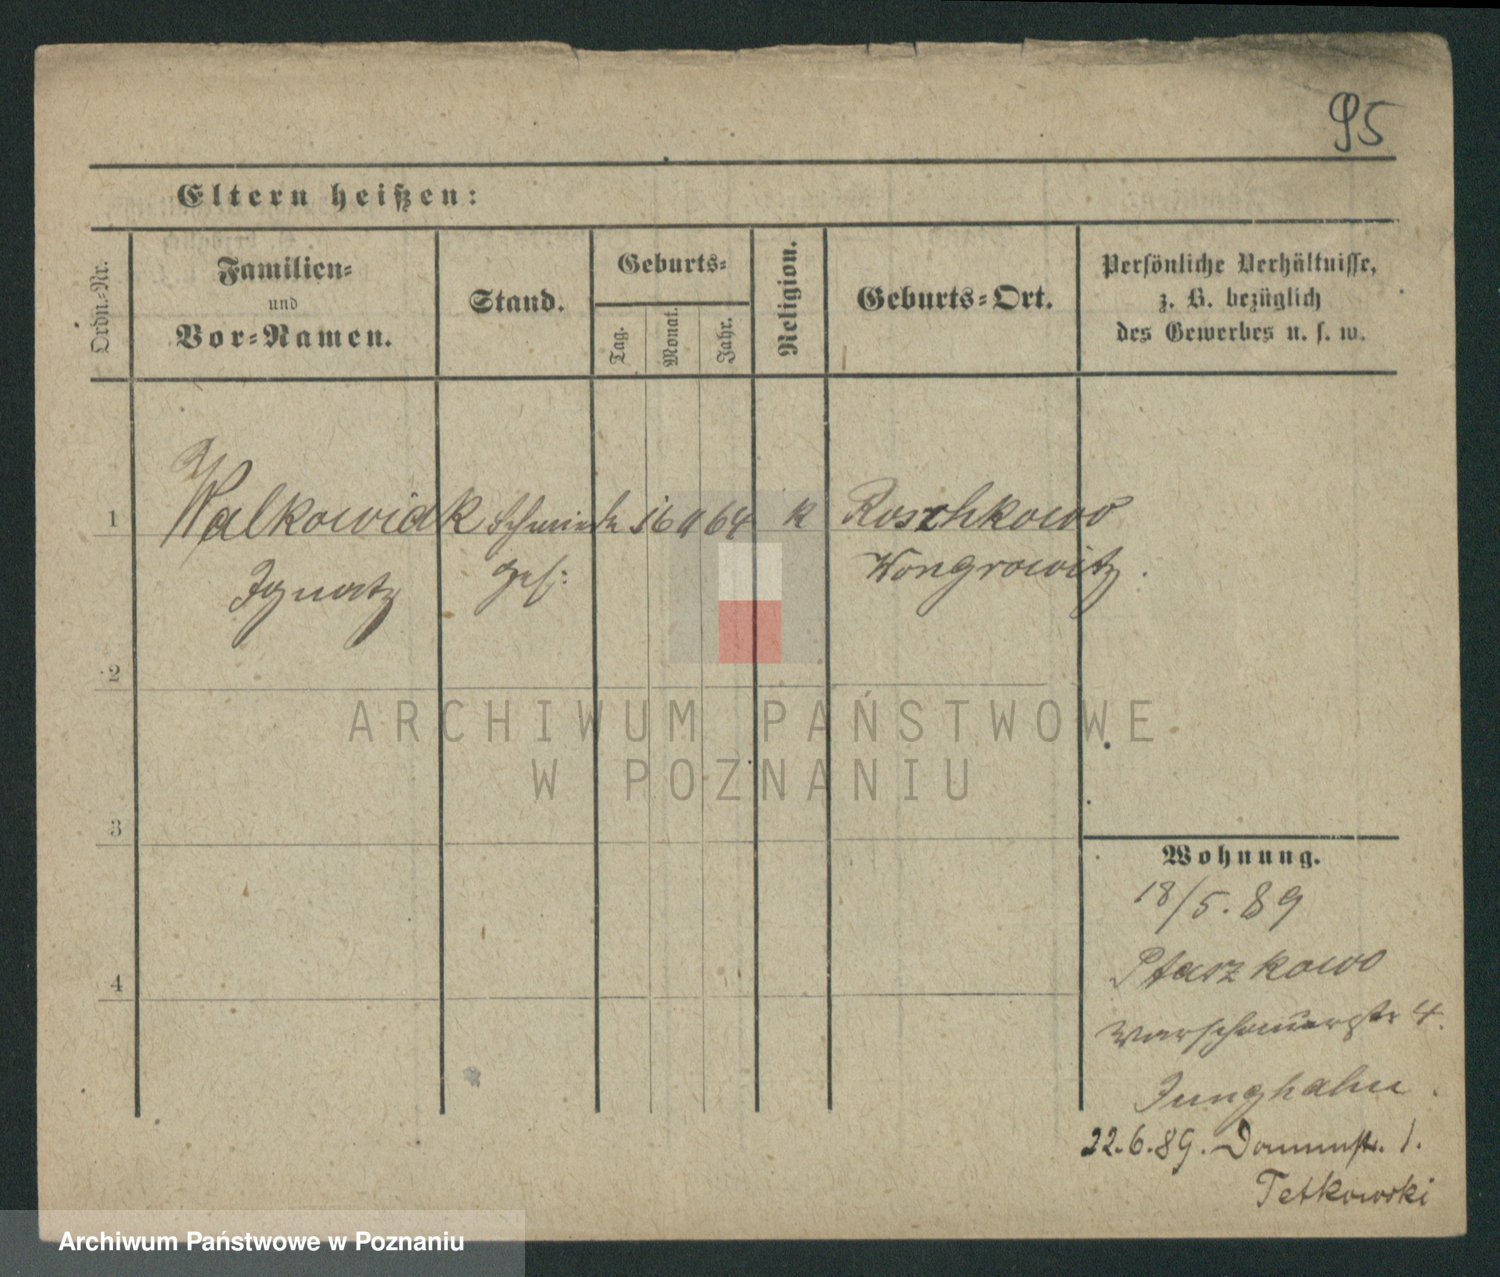 95
Eltern heißen:
Ordn.-Nr.
Familien-
und
Vor-Namen.
Stand.
Geburts-
Tag.
Monat.
Jahr.
Religion.
Geburts-Ort.
Persönliche Verhältnisse,
z. B. bezüglich
des Gewerbes u. s. w.
1 Walkowiak Schmiede 16 64 k Roschkowo
Ignatz Ges: Wongrowitz.
2
3
4
Wohnung.
18/5. 89
Ptaszkowo
Warschauerstr 4.
Junghahn.
22.6.89. Dominstr. 1.
Tetkowski
ARCHIWUM PAŃSTWOWE
W POZNANIU
Archiwum Państwowe w Poznaniu